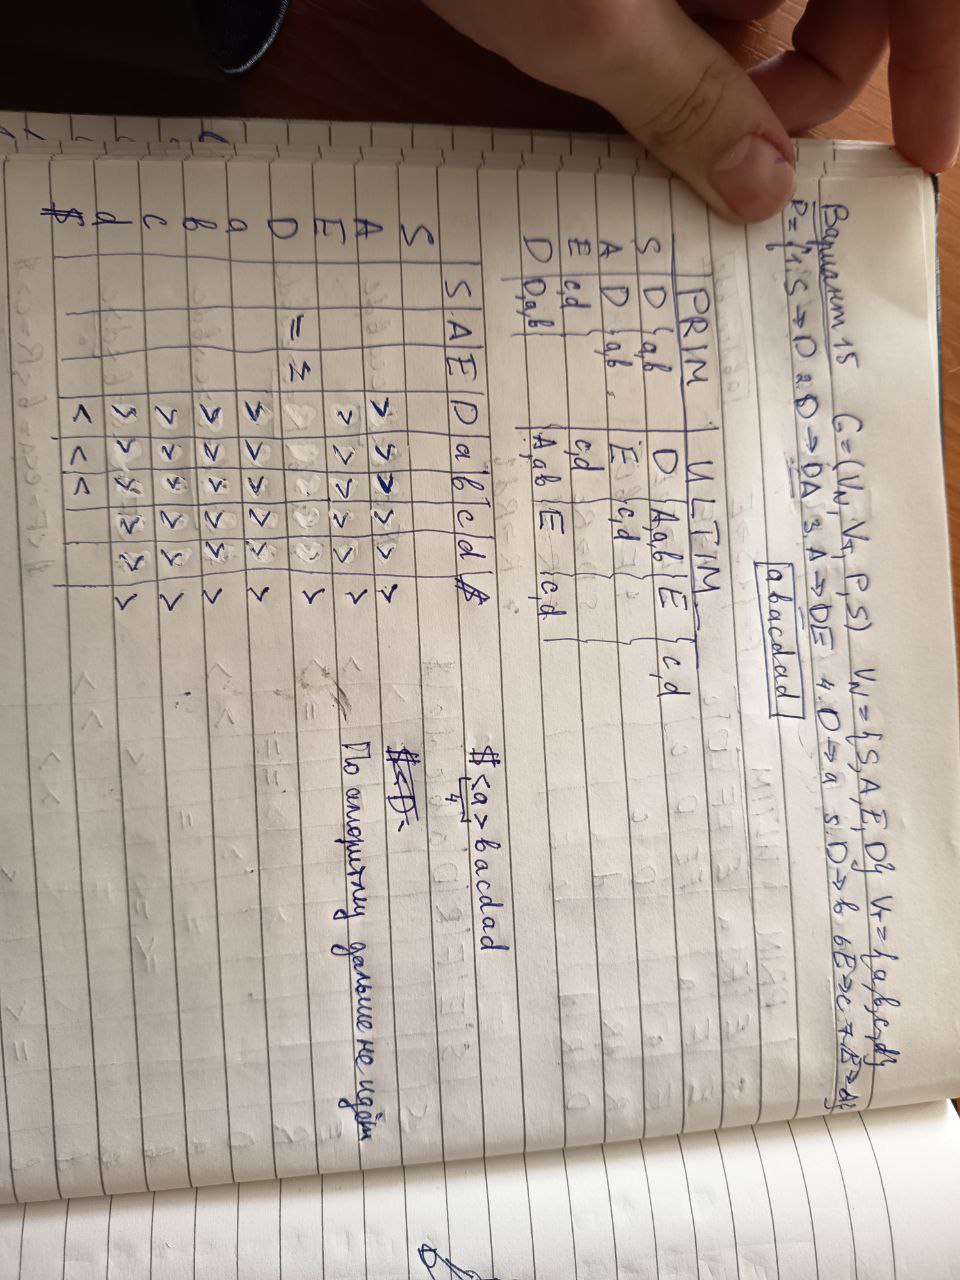 Вариант 15 G=(V_N, V_T, P, S) V_N={S,A,E,D} V_T={a,b,c,d}
P={1. S→D 2. D→DA 3. A→DE 4. D→a 5. D→b 6. E→c 7. E→d}
abacdad
PRIM ULTIM
S D a,b D A,a,b E c,d
A D a,b E c,d
E c,d c,d
D D,a,b A,a,b E c,d
$<a>bacdad
4
S A E D a b c d $
S
$<D<
A > > > > > >
По алгоритму дальше не идёт
E > > > > > >
D = = >
a > > > > > >
b > > > > > >
c > > > > > >
d > > > > > >
$ < < <